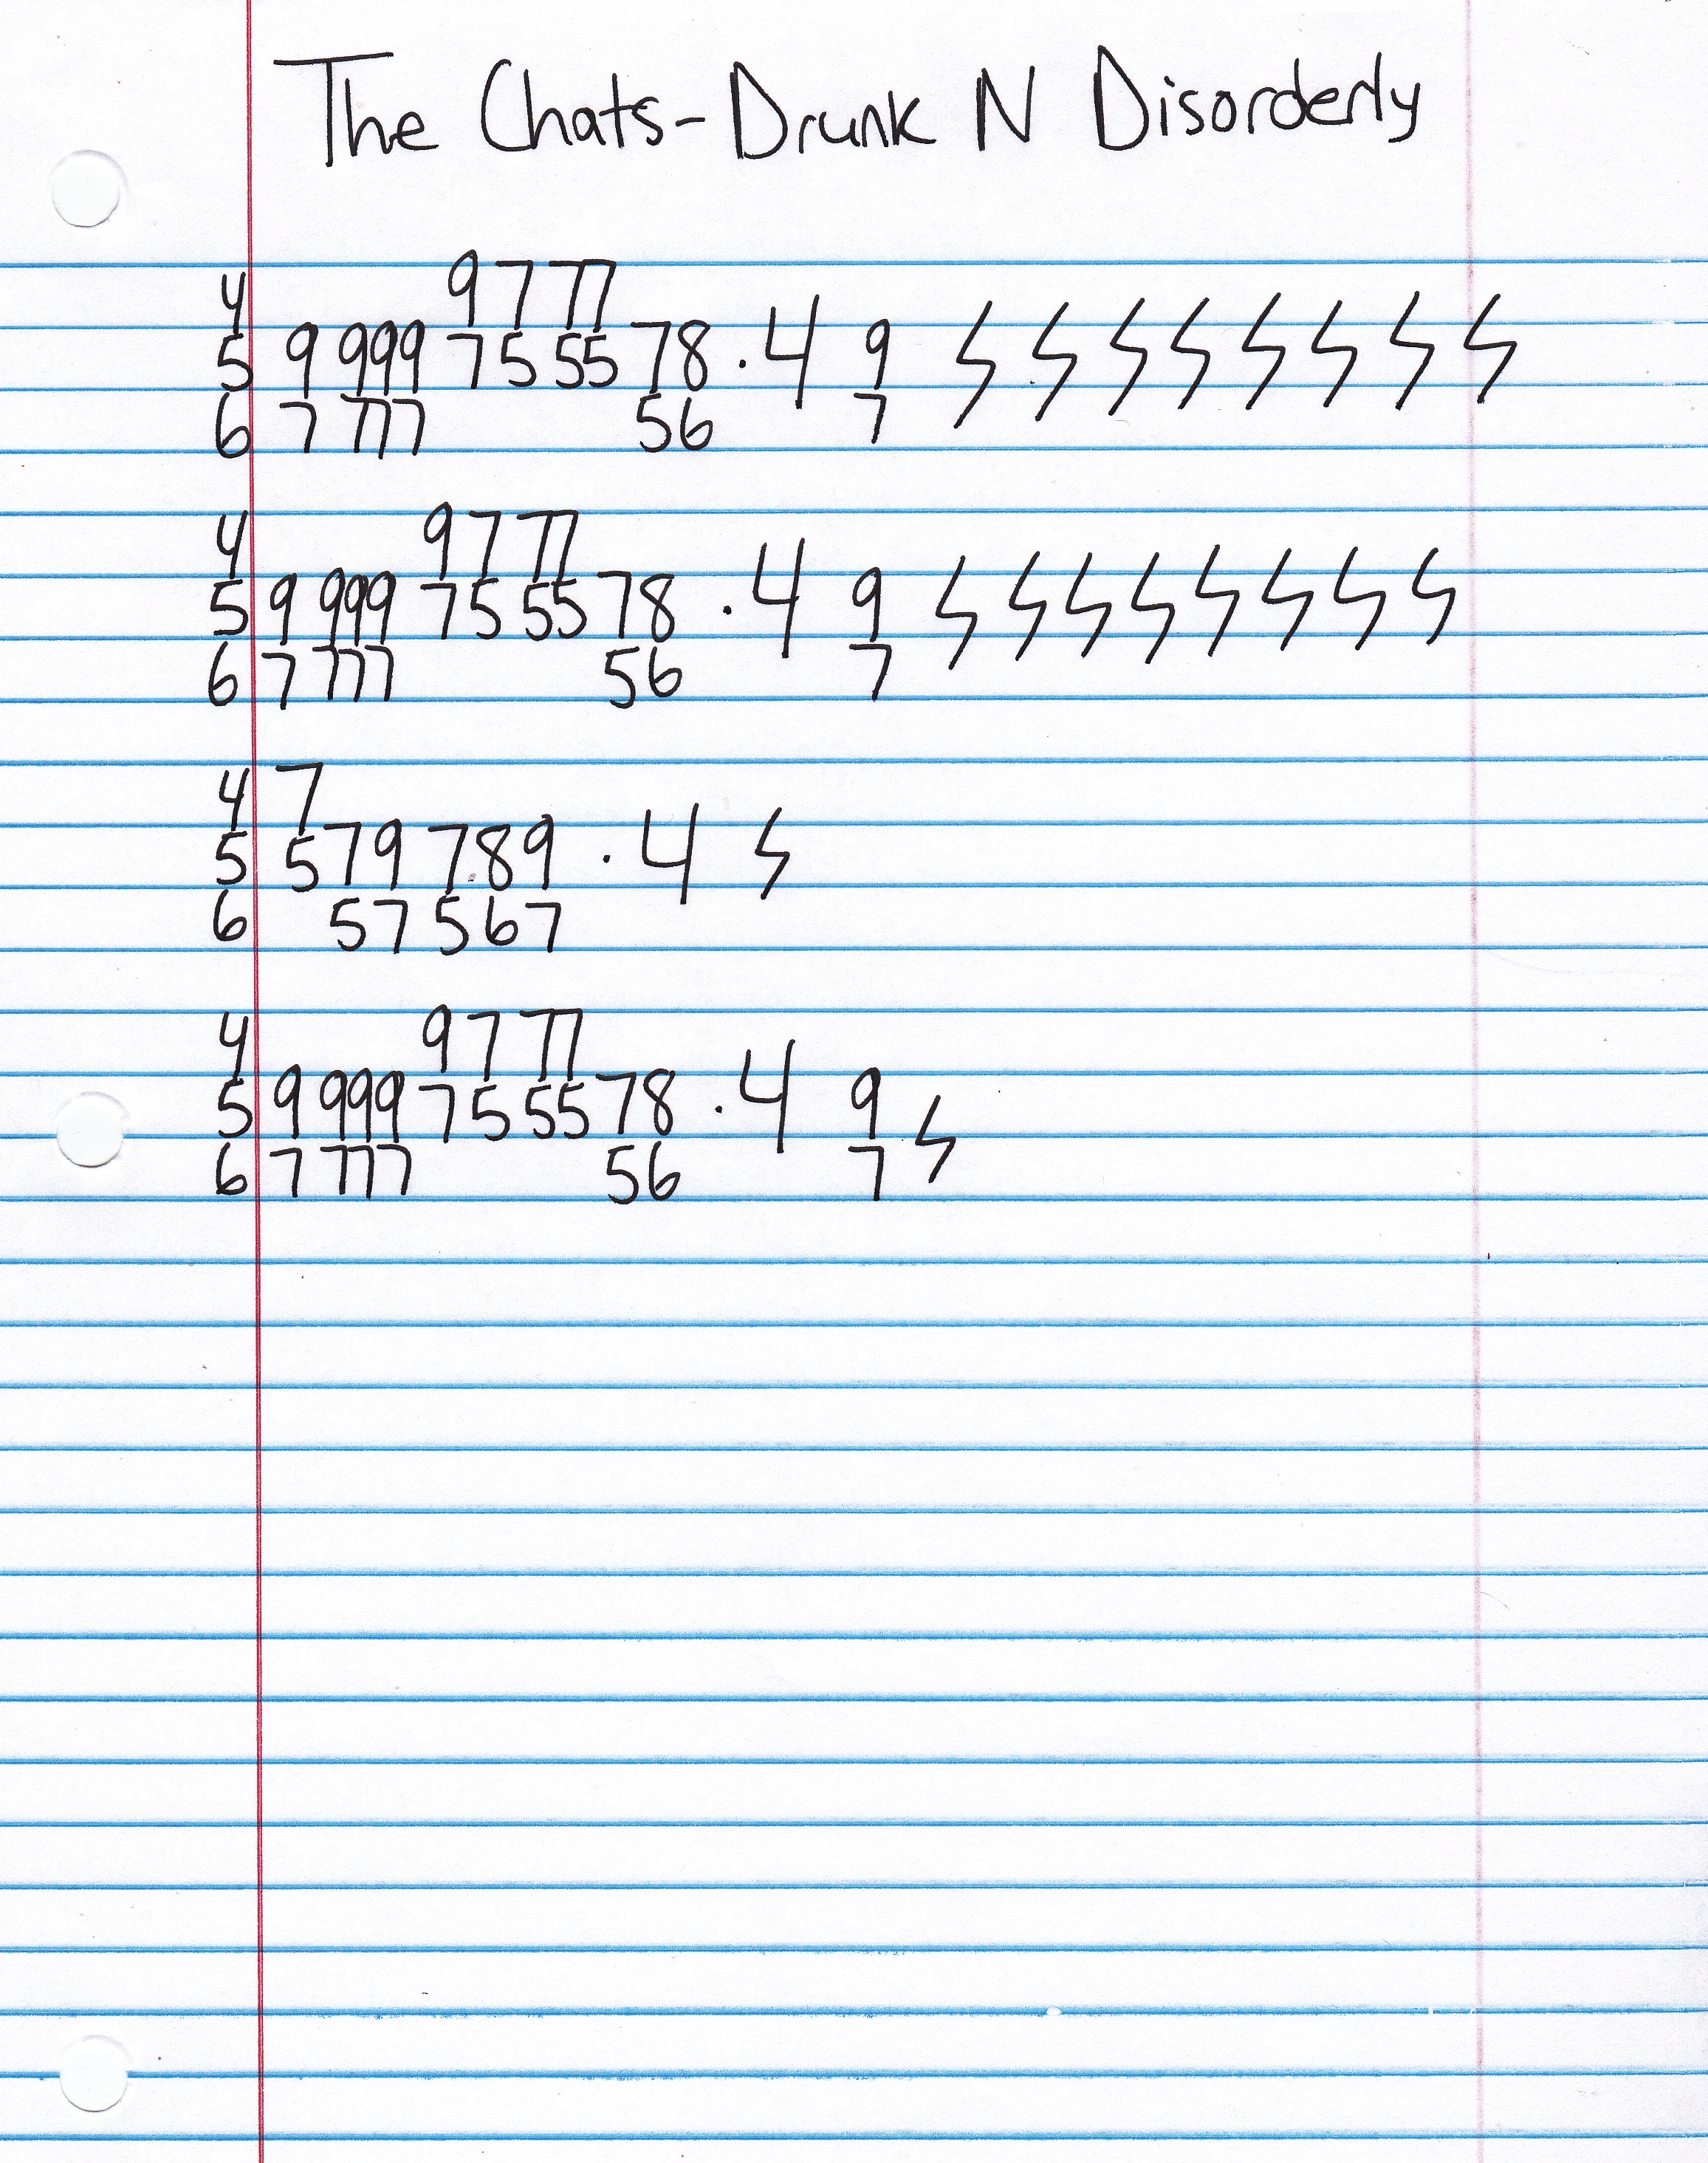 The Chats - Drunk N Disorderly
4 9 7 77
5 9 999 75 55 78 · 4 9 ϟ ϟ ϟ ϟ ϟ ϟ ϟ ϟ
6 7 777 56 7
4 9 7 77
5 9 999 75 55 78 · 4 9 ϟ ϟ ϟ ϟ ϟ ϟ ϟ ϟ
6 7 777 56 7
4 7
5 579 789 · 4 ϟ
6 57 567
4 9 7 77
5 9 999 75 55 78 · 4 9 ϟ
6 7 777 56 7